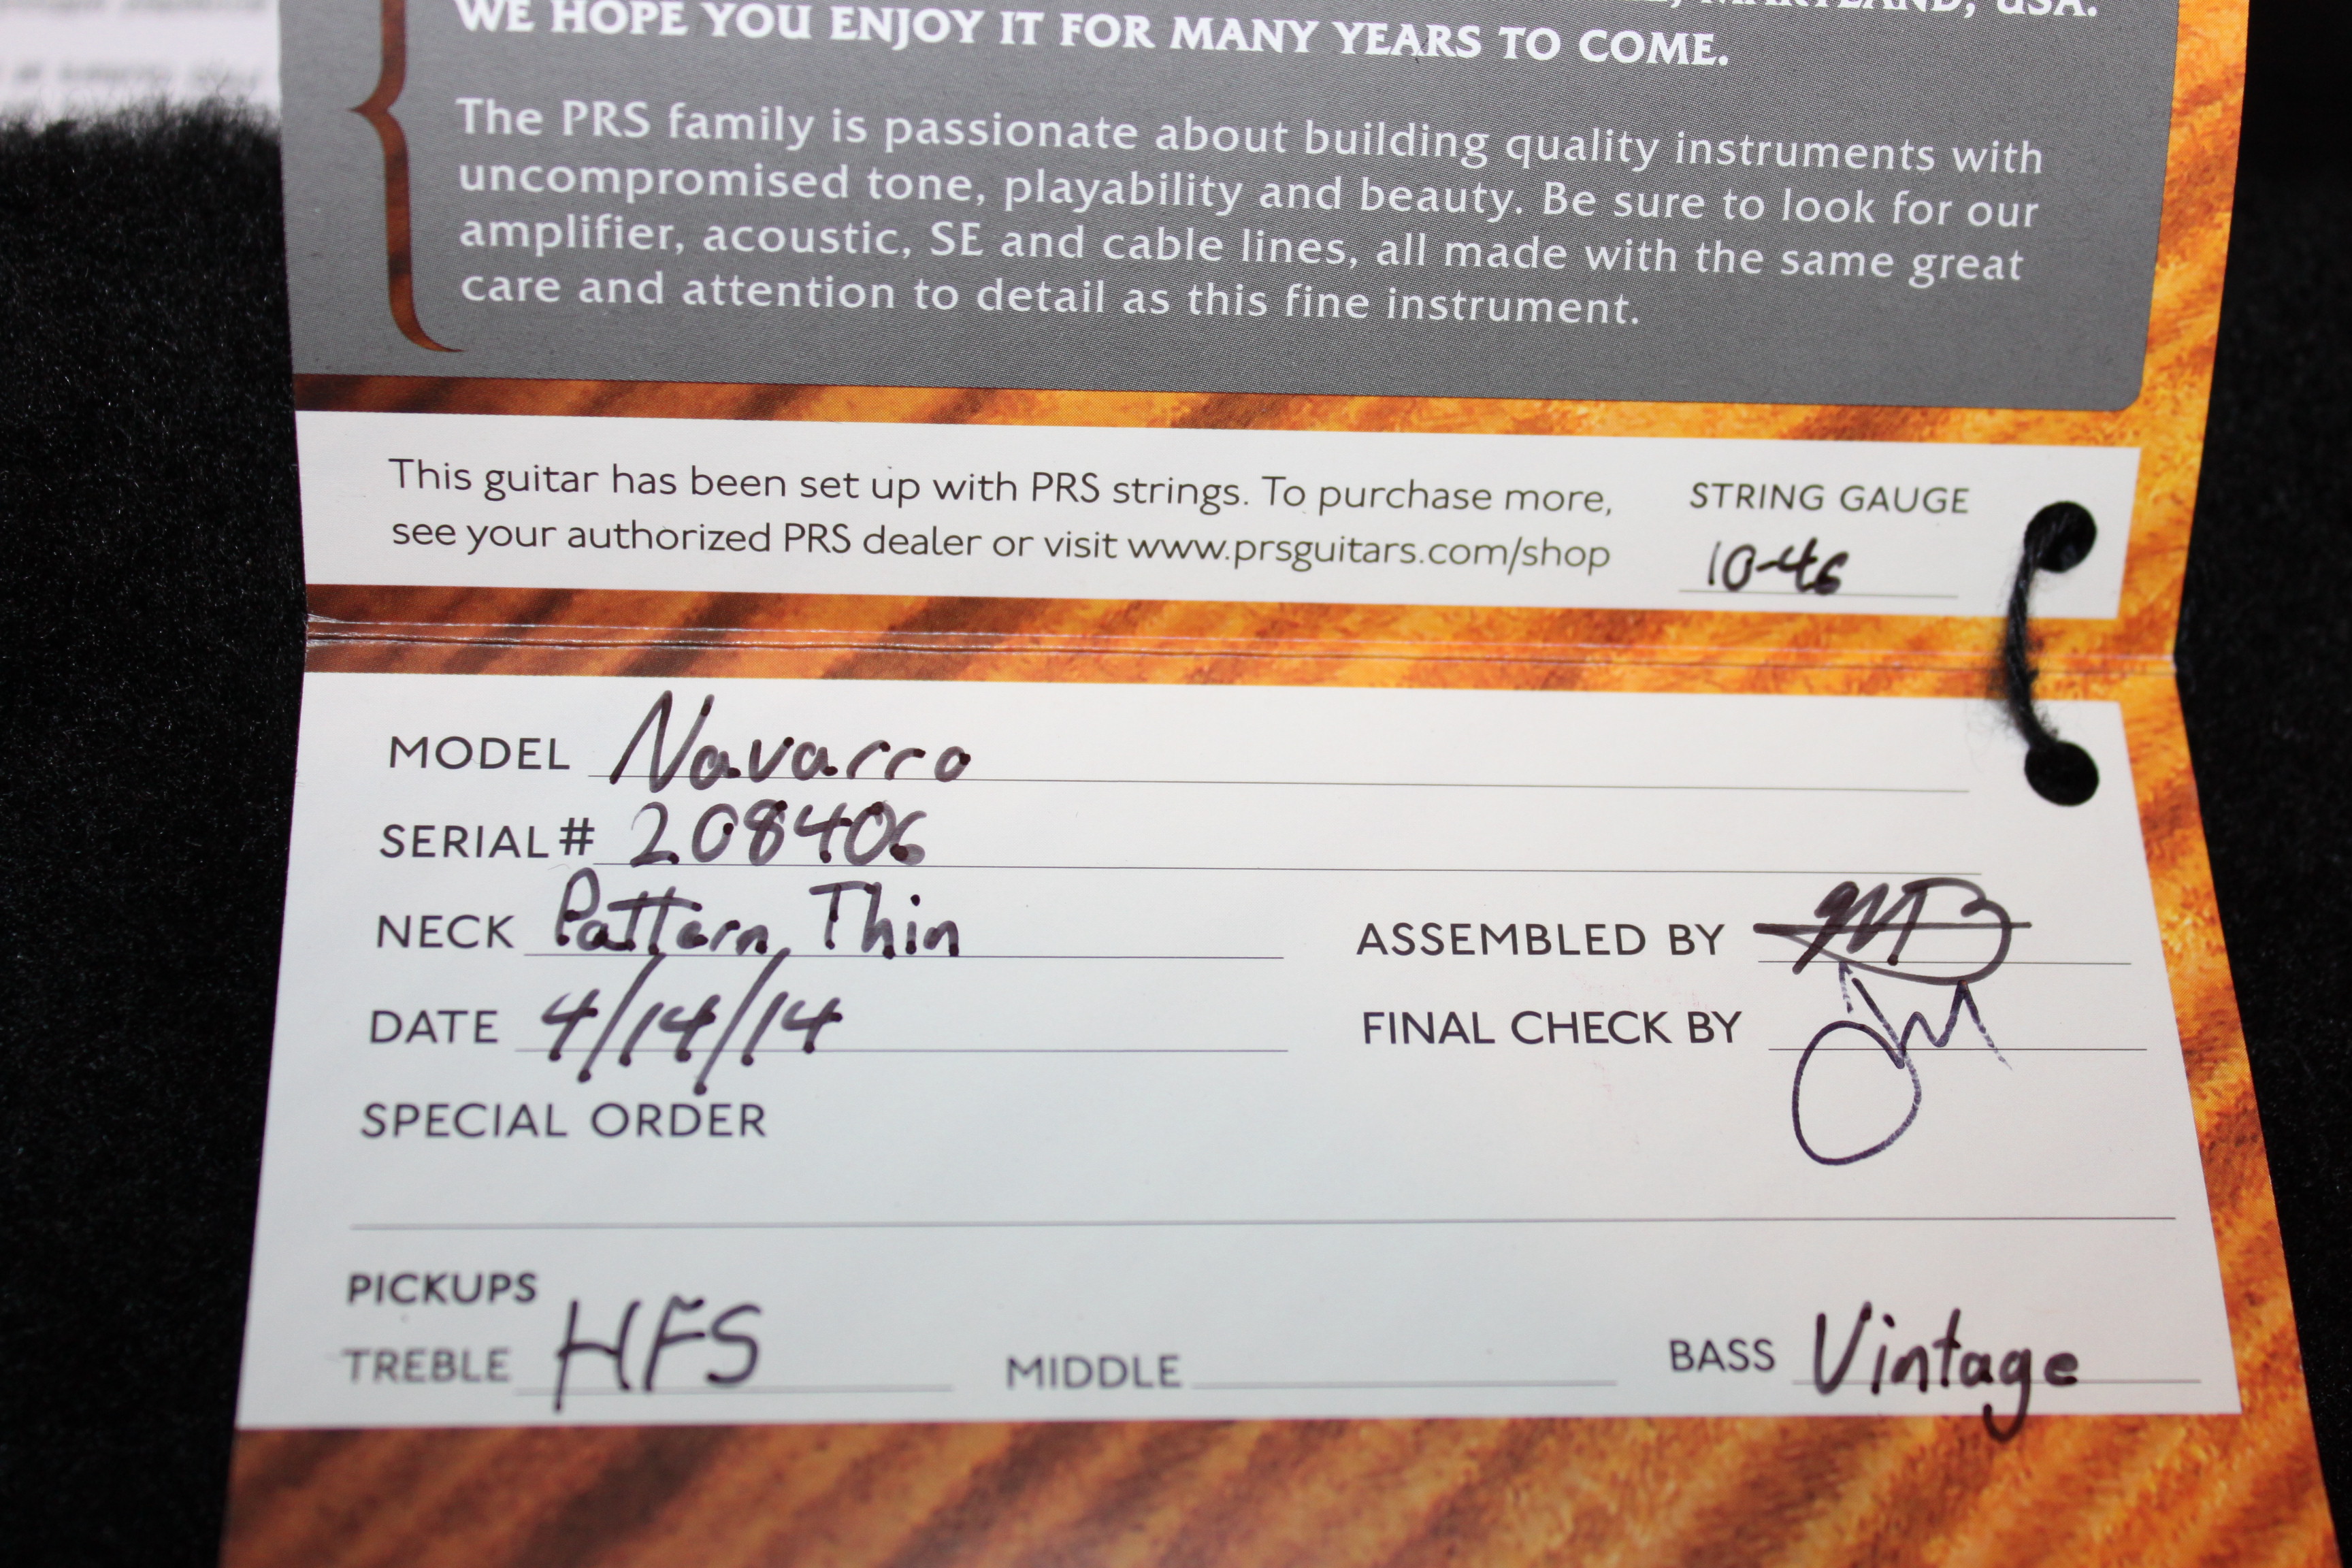 MARYLAND, USA.
WE HOPE YOU ENJOY IT FOR MANY YEARS TO COME.
The PRS family is passionate about building quality instruments with
uncompromised tone, playability and beauty. Be sure to look for our
amplifier, acoustic, SE and cable lines, all made with the same great
care and attention to detail as this fine instrument.
This guitar has been set up with PRS strings. To purchase more,
see your authorized PRS dealer or visit www.prsguitars.com/shop
STRING GAUGE
10-46
MODEL Navarro
SERIAL # 208406
NECK Pattern, Thin
ASSEMBLED BY
DATE 4/14/14
FINAL CHECK BY
SPECIAL ORDER
PICKUPS
TREBLE HFS MIDDLE BASS Vintage